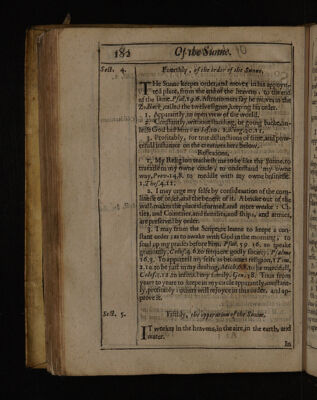 182
Of the Sunne.
Sect. 4.
Fourthly, of the order of the Sunne.
THe Sunne keepes order, and moves in his appoynted
place, from the end of the heavens, to the end
of the same. Psal. 19.6. Astronomers say he moves in the
Zodiack, in the twelve signes, keeping his order.
1. Apparantly, to open view of the world.
2. Constantly, without standing, or going backe, unlesse
God bid him: as Jos. 10. 2 King. 20. 11.
3. Profitably, for true distinctions of time, and powerfull
influence on the creatures here below.
Reflections.
1. My Religion teacheth me to be like the Sunne, to
move in my owne circle, to understand my owne
way, Prov. 14.8. to meddle with my owne businesse.
1. Thes. 4. 11.
2. I may urge my selfe by consideration of the comlinesse
of order, and the benefit of it. A bricke out of the
wall makes the place deformed, and more weake: Cities,
and Countries, and families, and ships, and armies,
are preserved by order.
3. I may from the Scripture learne to keepe a constant
order: as to awake with God in the morning; to
sing
before him. Psal. 59. 16. to speake
graciously. Colos. 4. 6. to
godly
Psalme
16. 3. To apparrell my selfe as becomes religion, 1 Tim.
2. 10. to be just in my dealing, Micah 6.8. to be mercifull,
Colos. 3. 12. to instruct my family. Gen. 18. Thus from
yeare to yeare to keepe in my circle apparantly, constantly,
profitably: others will rejoyce in this order, and approve
it.
Sect. 5.
Fifthly, the operation of the Sunne.
IT workes in the heavens, in the aire, in the earth, and
water.
In